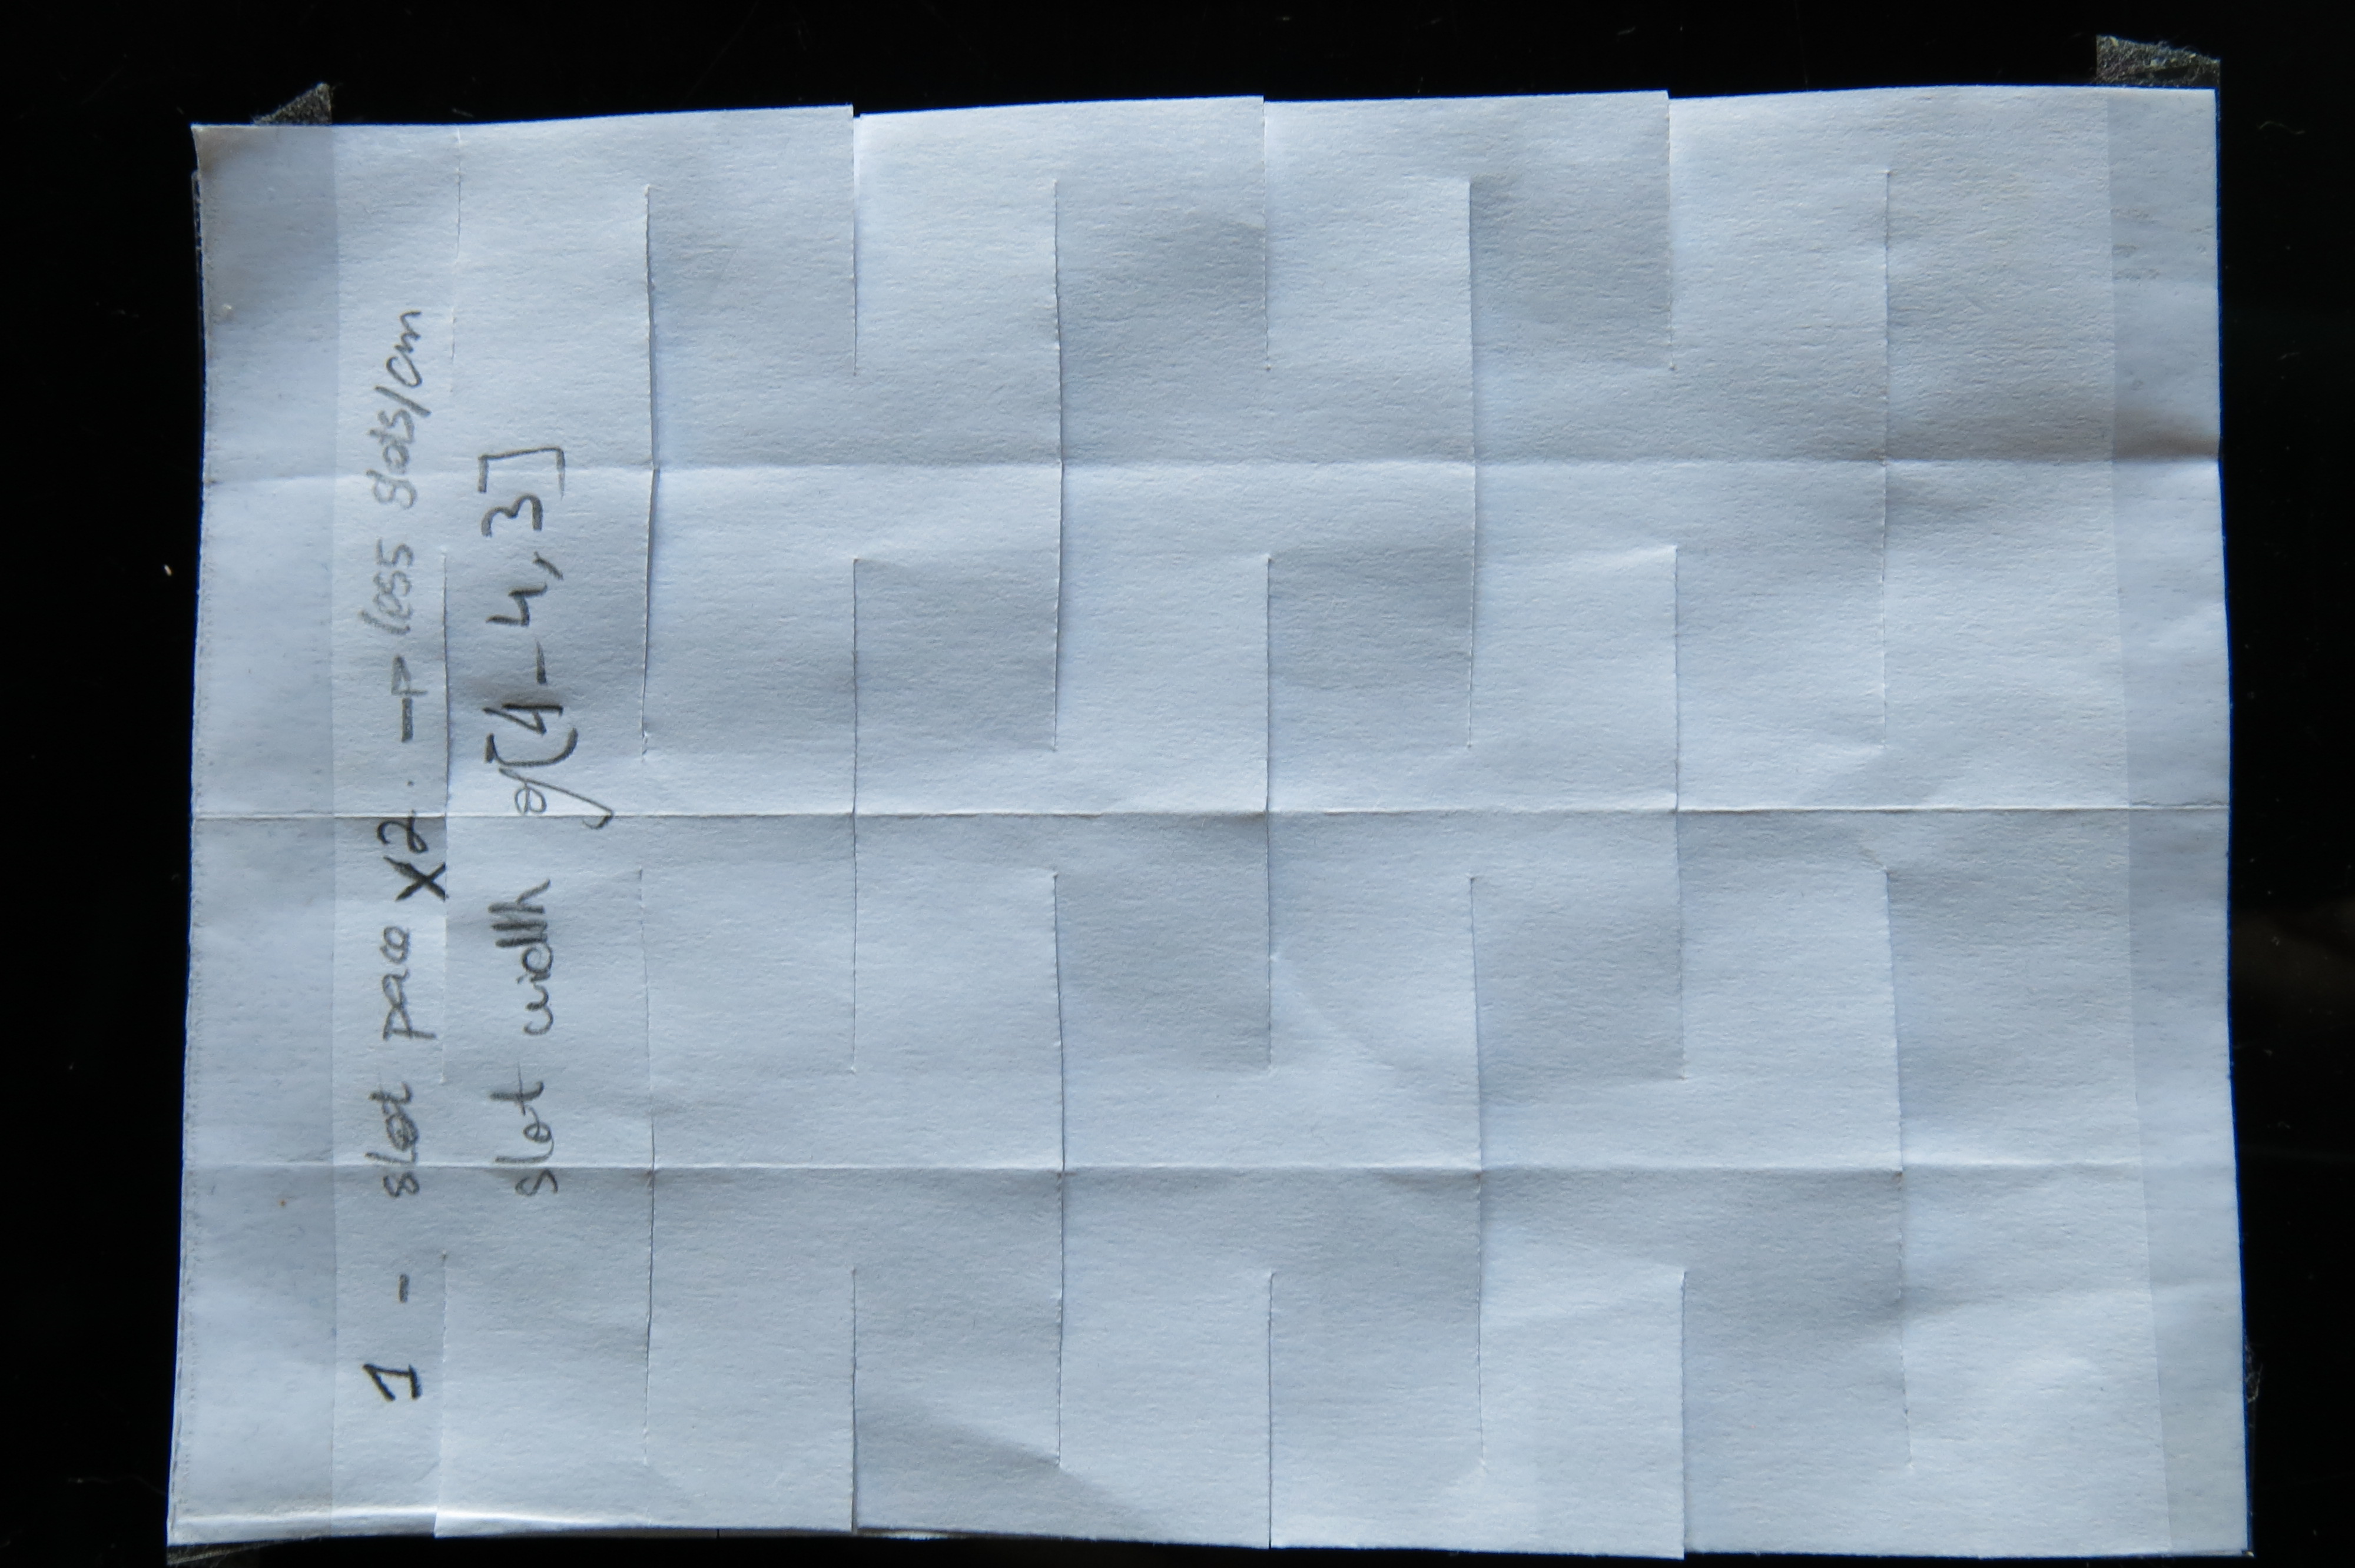 1 - slot pace x2. -> less slots/cm
slot width of [4-4,3]